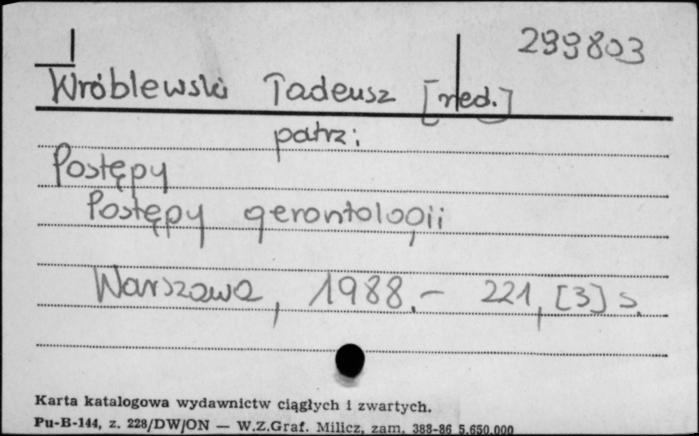 299803
Wróblewski Tadeusz [red.]
patrz:
Postępy
Postępy gerontologii
Warszawa, 1988.- 221, [3] s.
Karta katalogowa wydawnictw ciągłych i zwartych.
Pu-B-144, z. 228/DW/ON — W.Z.Graf. Milicz, zam. 388-86 5.650.000